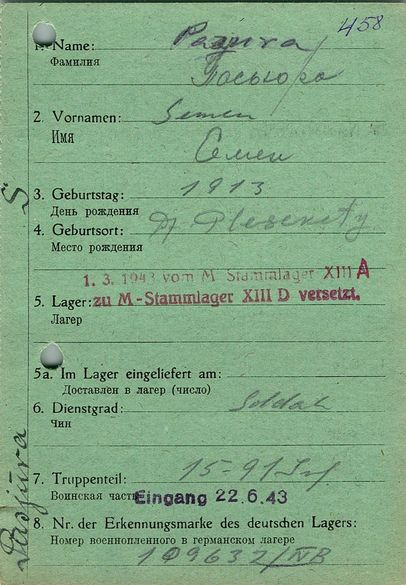 458
1. Name:
Фамилия
2. Vornamen: Semen
Имя Семен
3. Geburtstag: 1913
День рождения
4. Geburtsort:
Место рождения
1. 3. 1943 vom M Stammlager XIII A
5. Lager: zu M-Stammlager XIII D versetzt.
Лагер
5a. Im Lager eingeliefert am:
Доставлен в лагер (число)
6. Dienstgrad: Soldat
Чин
7. Truppenteil: 15-91 Inf
Воинская часть Eingang 22.6.43
8. Nr. der Erkennungsmarke des deutschen Lagers:
Номер военнопленного в германском лагере
109632/IVB